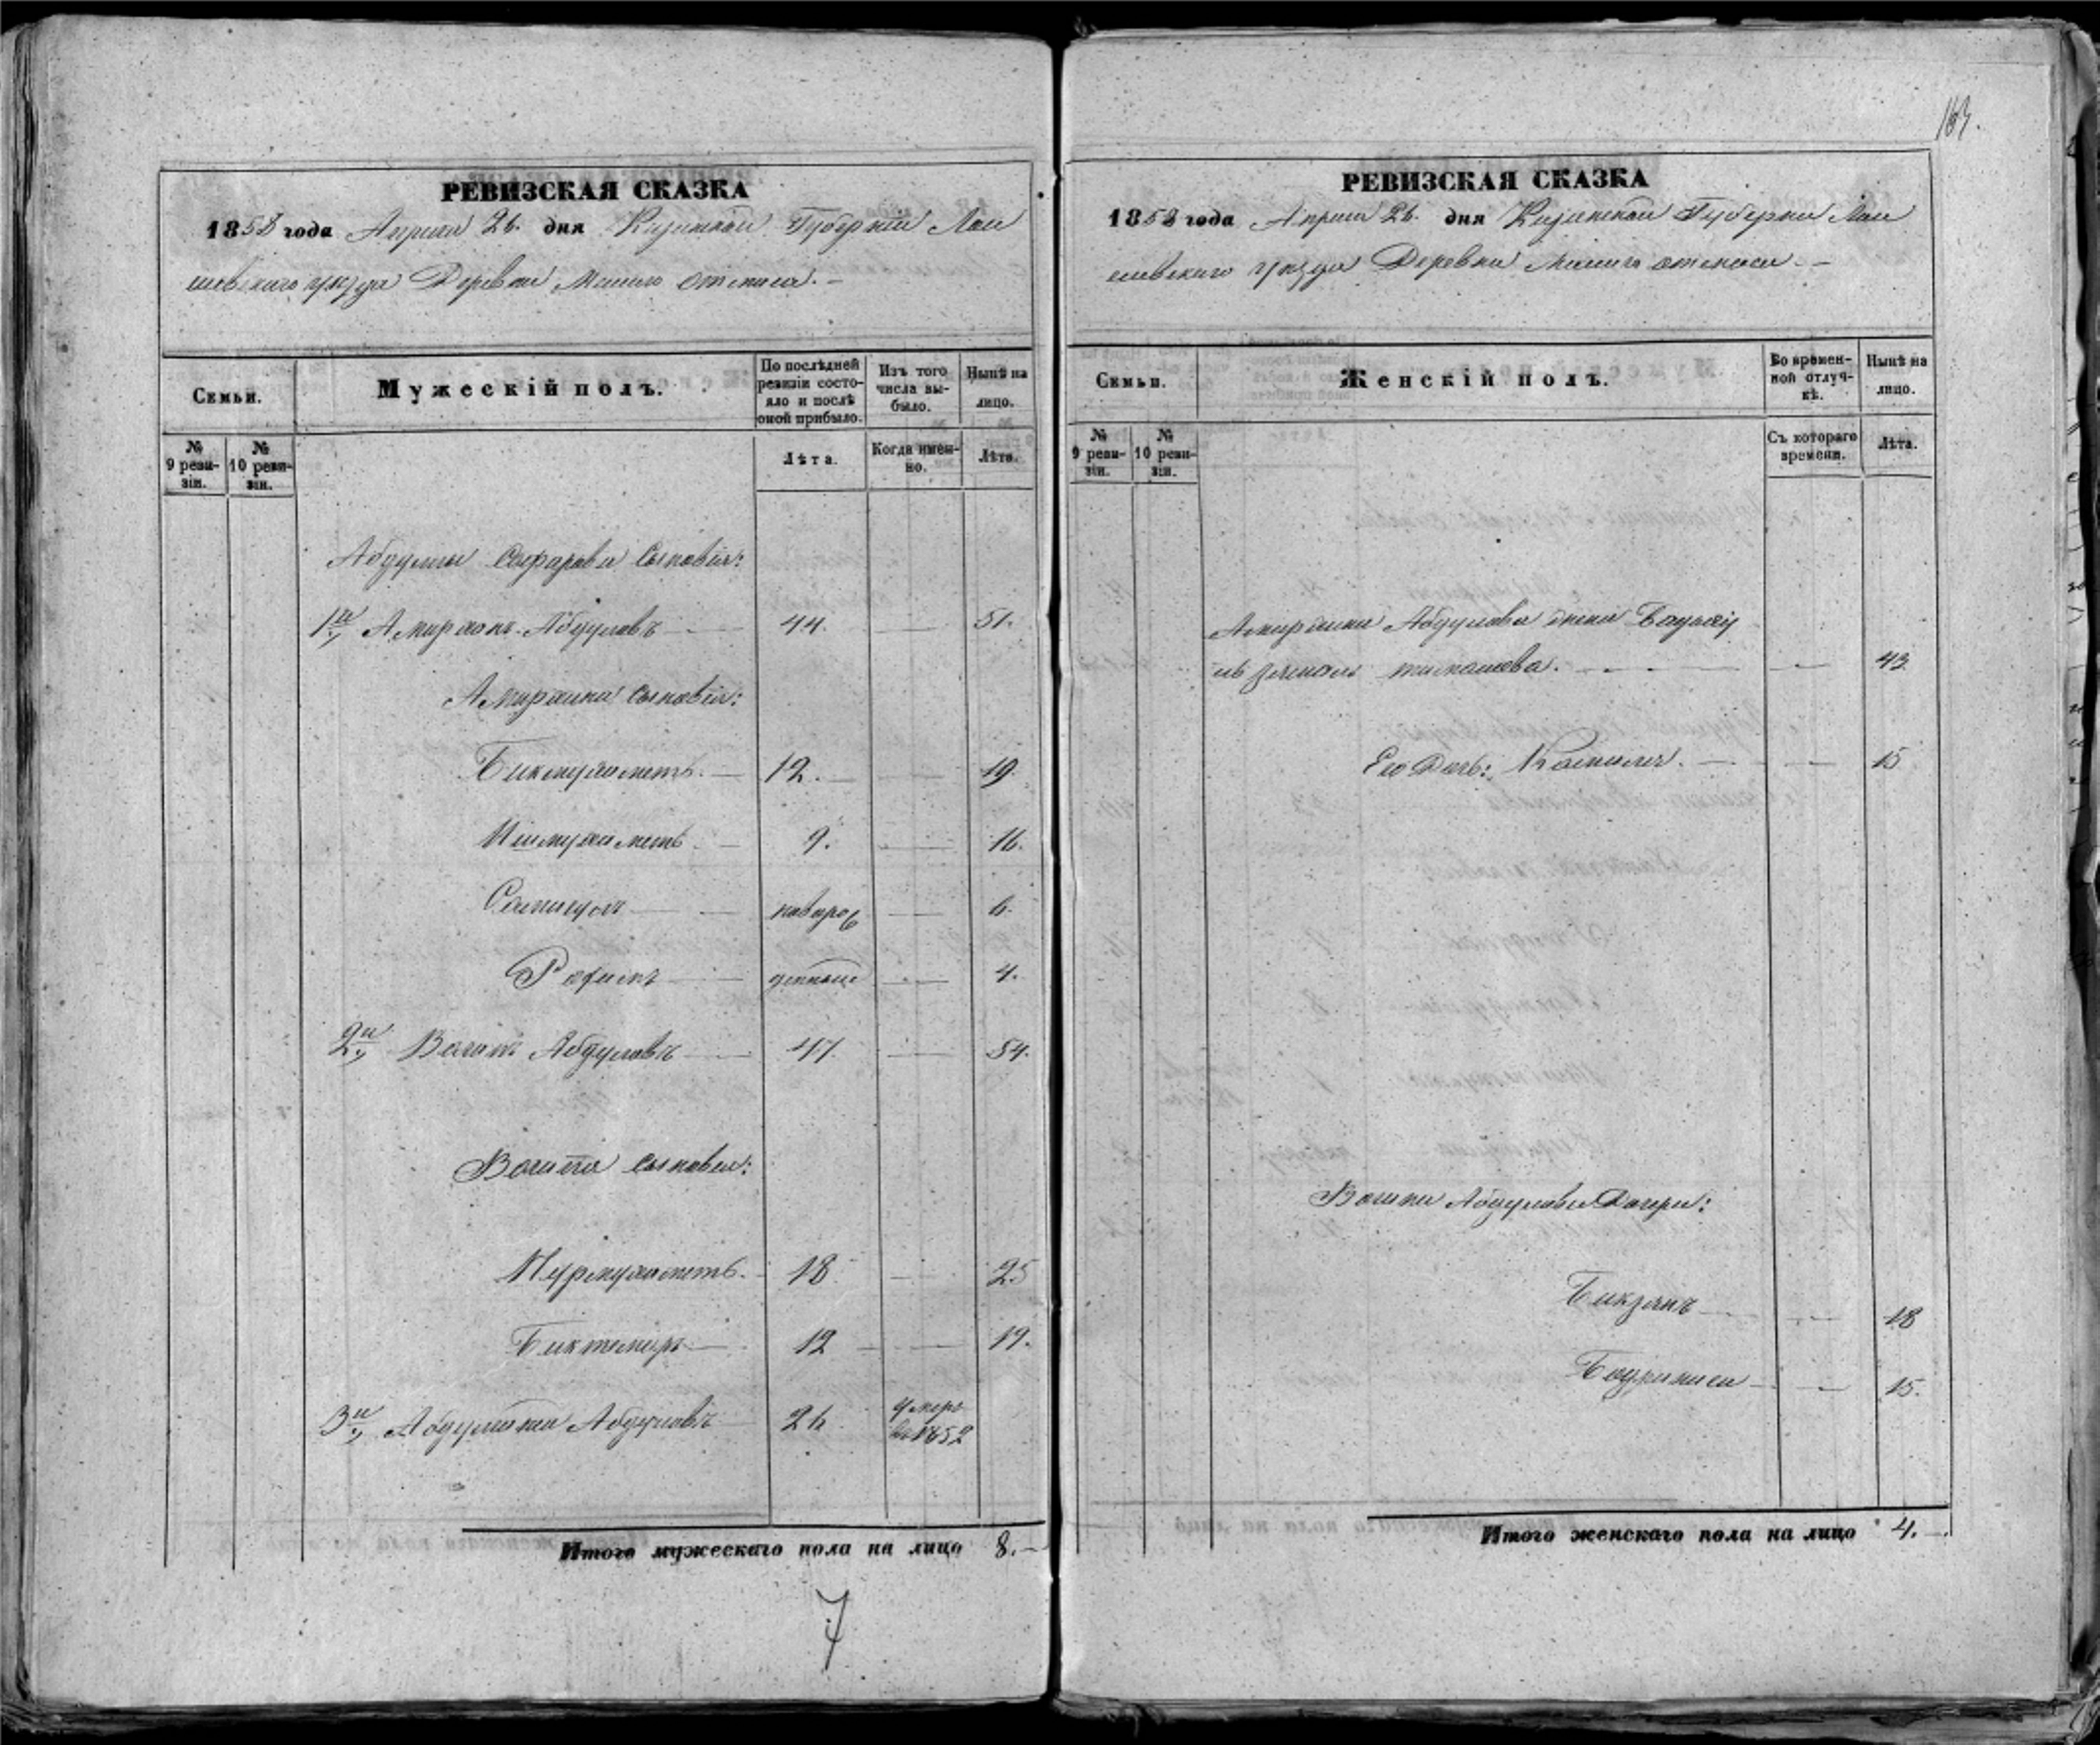 163.
РЕВИЗСКАЯ СКАЗКА
1858 года Апреля 26. дня Казанской Губернии Лаи
шевскаго уезда Деревни Малаго Отменя
Семьи.
Мужескій полъ.
По послѣдней ревизіи состояло и послѣ оной прибыло.
Изъ того числа выбыло.
Нынѣ на лицо.
№ 9 ревизіи.
№ 10 ревизіи.
Лѣта.
Когда именно.
Лѣта.
Абдуллы Сафарова Сыновья:
1й Амирханъ Абдуловъ 44. 51.
Амирхана Сыновья:
Бикмухаметь 12. 19.
Ишмухаметь 9. 16.
новоро 6.
Рахимъ жденные 4.
2й Вагапъ Абдуловъ 47. 54.
Вагапа Сыновья:
Нурмухаметь 18 25
Биктемиръ 12 19.
3й Абдуловъ 26 умеръ въ 1852
Итого мужескаго пола на лицо 8.
7
РЕВИЗСКАЯ СКАЗКА
1858 года Апреля 26. дня Казанской Губернии Лаи
шевскаго уезда Деревни Малаго
Семьи.
Женскій полъ.
Во временной отлучкѣ.
Нынѣ на лицо.
№ 9 ревизіи.
№ 10 ревизіи.
Съ котораго времени.
Лѣта.
Амирхана Абдулова жена
43
Его Дочь: Камиля. 15
Вагапа Абдулова Дочери:
Бикзянъ 18
Бадриниса 15.
Итого женскаго пола на лицо 4.